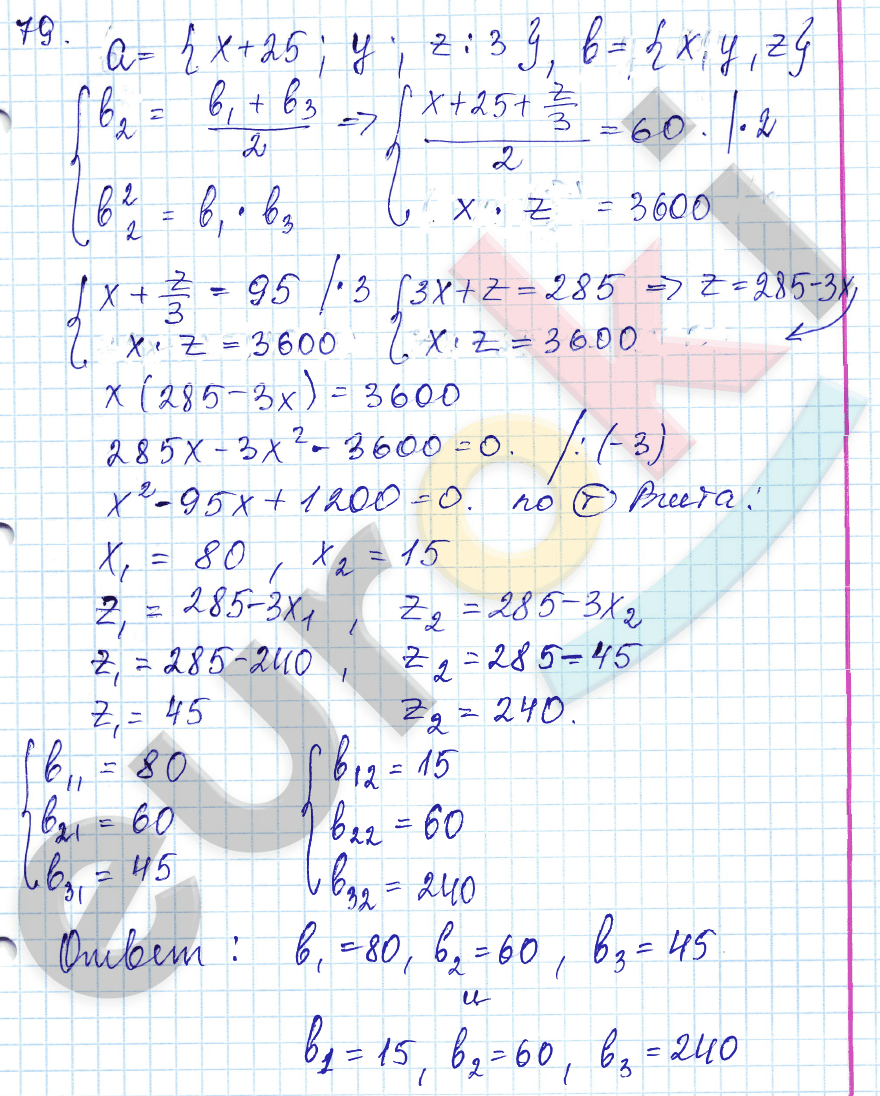 79. a = { x+25 ; y ; z : 3 }, b = { x, y, z }
{ b₂ = (b₁ + b₃)/2 => { (x + 25 + z/3)/2 = 60. | · 2
{ b₂² = b₁ · b₃ { x · z = 3600
{ x + z/3 = 95 | · 3 { 3x + z = 285 => z = 285 - 3x,
{ x · z = 3600 { x · z = 3600
x (285 - 3x) = 3600
285x - 3x² - 3600 = 0. | : (-3)
x² - 95x + 1200 = 0. по Ⓣ Виета:
x₁ = 80 , x₂ = 15
z₁ = 285 - 3x₁ , z₂ = 285 - 3x₂
z₁ = 285 - 240 , z₂ = 285 - 45
z₁ = 45 z₂ = 240.
{ b₁₁ = 80 { b₁₂ = 15
{ b₂₁ = 60 { b₂₂ = 60
{ b₃₁ = 45 { b₃₂ = 240
Ответ : b₁ = 80, b₂ = 60 , b₃ = 45
и
b₁ = 15, b₂ = 60, b₃ = 240
euroki